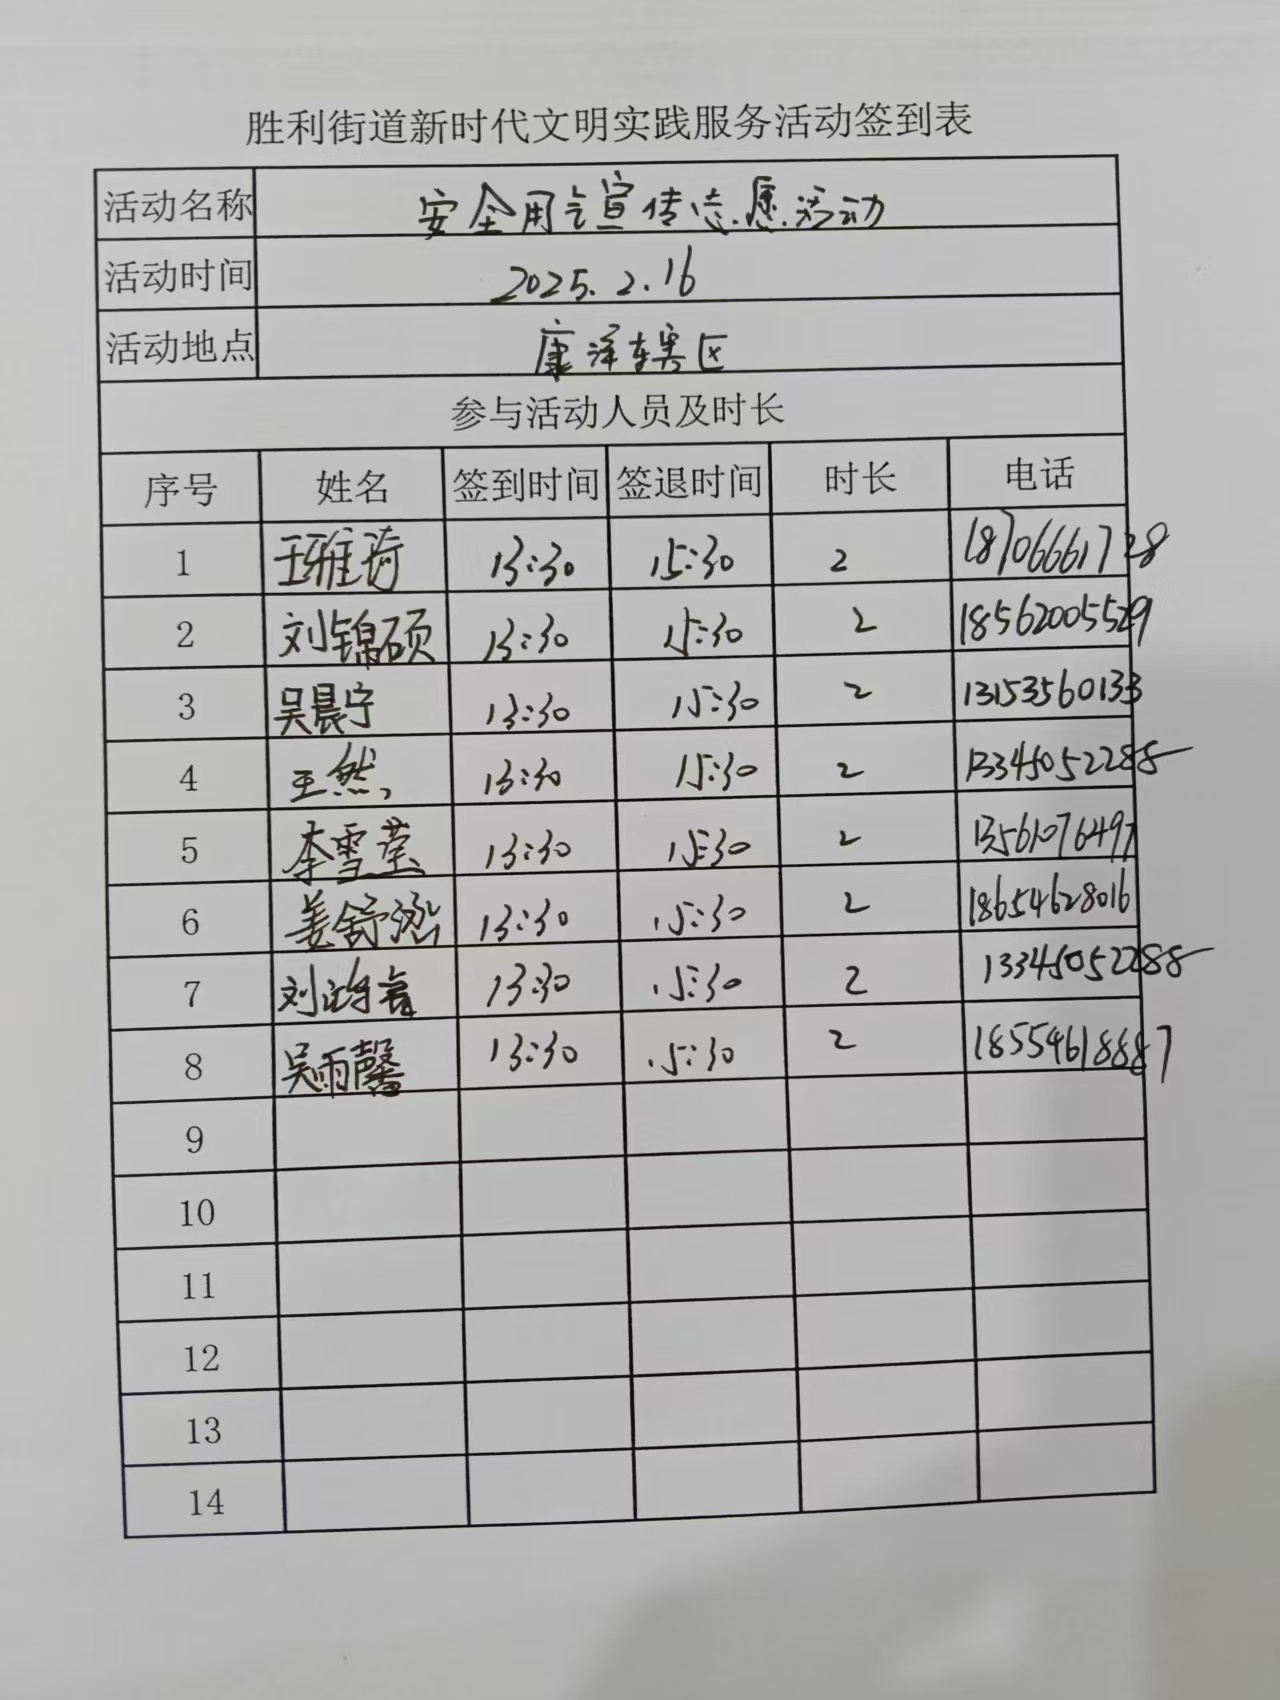 胜利街道新时代文明实践服务活动签到表
活动名称 安全用气宣传志愿活动
活动时间 2025.2.16
活动地点 康泽辖区
参与活动人员及时长
序号 姓名 签到时间 签退时间 时长 电话
1 王雅琦 13:30 15:30 2 18706661728
2 刘锦硕 13:30 15:30 2 18562005529
3 吴晨宁 13:30 15:30 2 13153560133
4 王然 13:30 15:30 2 13345052288
5 李雪莹 13:30 15:30 2 13561076497
6 姜舒泓 13:30 15:30 2 18654628016
7 刘 13:30 15:30 2 13345052288
8 吴雨馨 13:30 15:30 2 18554618887
9
10
11
12
13
14